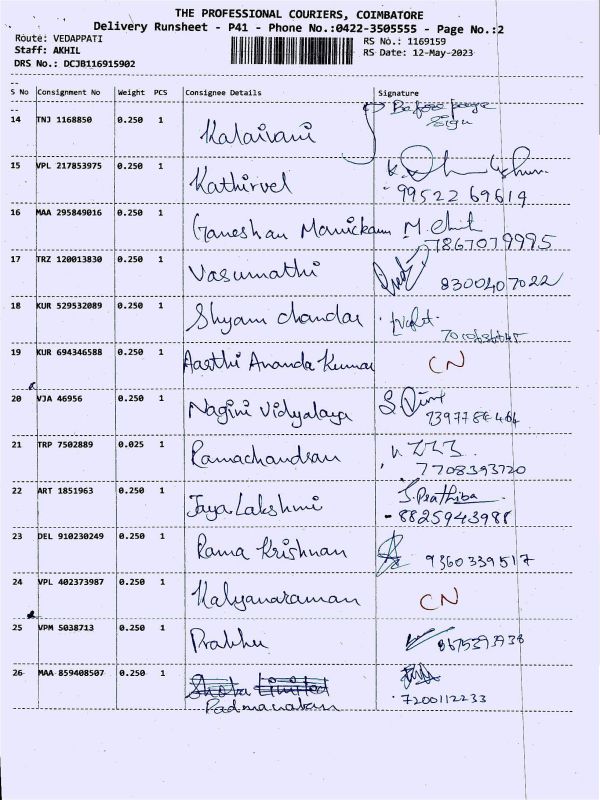 THE PROFESSIONAL COURIERS, COIMBATORE
Delivery Runsheet - P41 - Phone No.:0422-3505555 - Page No.:2
Route: VEDAPPATI
Staff: AKHIL
DRS No.: DCJB116915902
RS No.: 1169159
RS Date: 12-May-2023
S No Consignment No Weight PCS Consignee Details Signature
14 TNJ 1168850 0.250 1 Kalaivani
Sign
15 VPL 217853975 0.250 1 Kathirvel
99522 69614
16 MAA 295849016 0.250 1 Ganeshan Manickam
7867079995
17 TRZ 120013830 0.250 1 Vasumathi
8300407022
18 KUR 529532089 0.250 1 Shyam chandar
19 KUR 694346588 0.250 1 Aarthi Ananda Kumar CN
20 VJA 46956 0.250 1 Nagini Vidyalaya
21 TRP 7502889 0.025 1 Ramachandran
7708393720
22 ART 1851963 0.250 1 Jaya Lakshmi S.Prathiba
- 8825943988
23 DEL 910230249 0.250 1 Rama Krishnan
9360339517
24 VPL 402373987 0.250 1 Kalyanaraman CN
25 VPM 5038713 0.250 1 Prabhu
26 MAA 859408507 0.250 1
7200112233